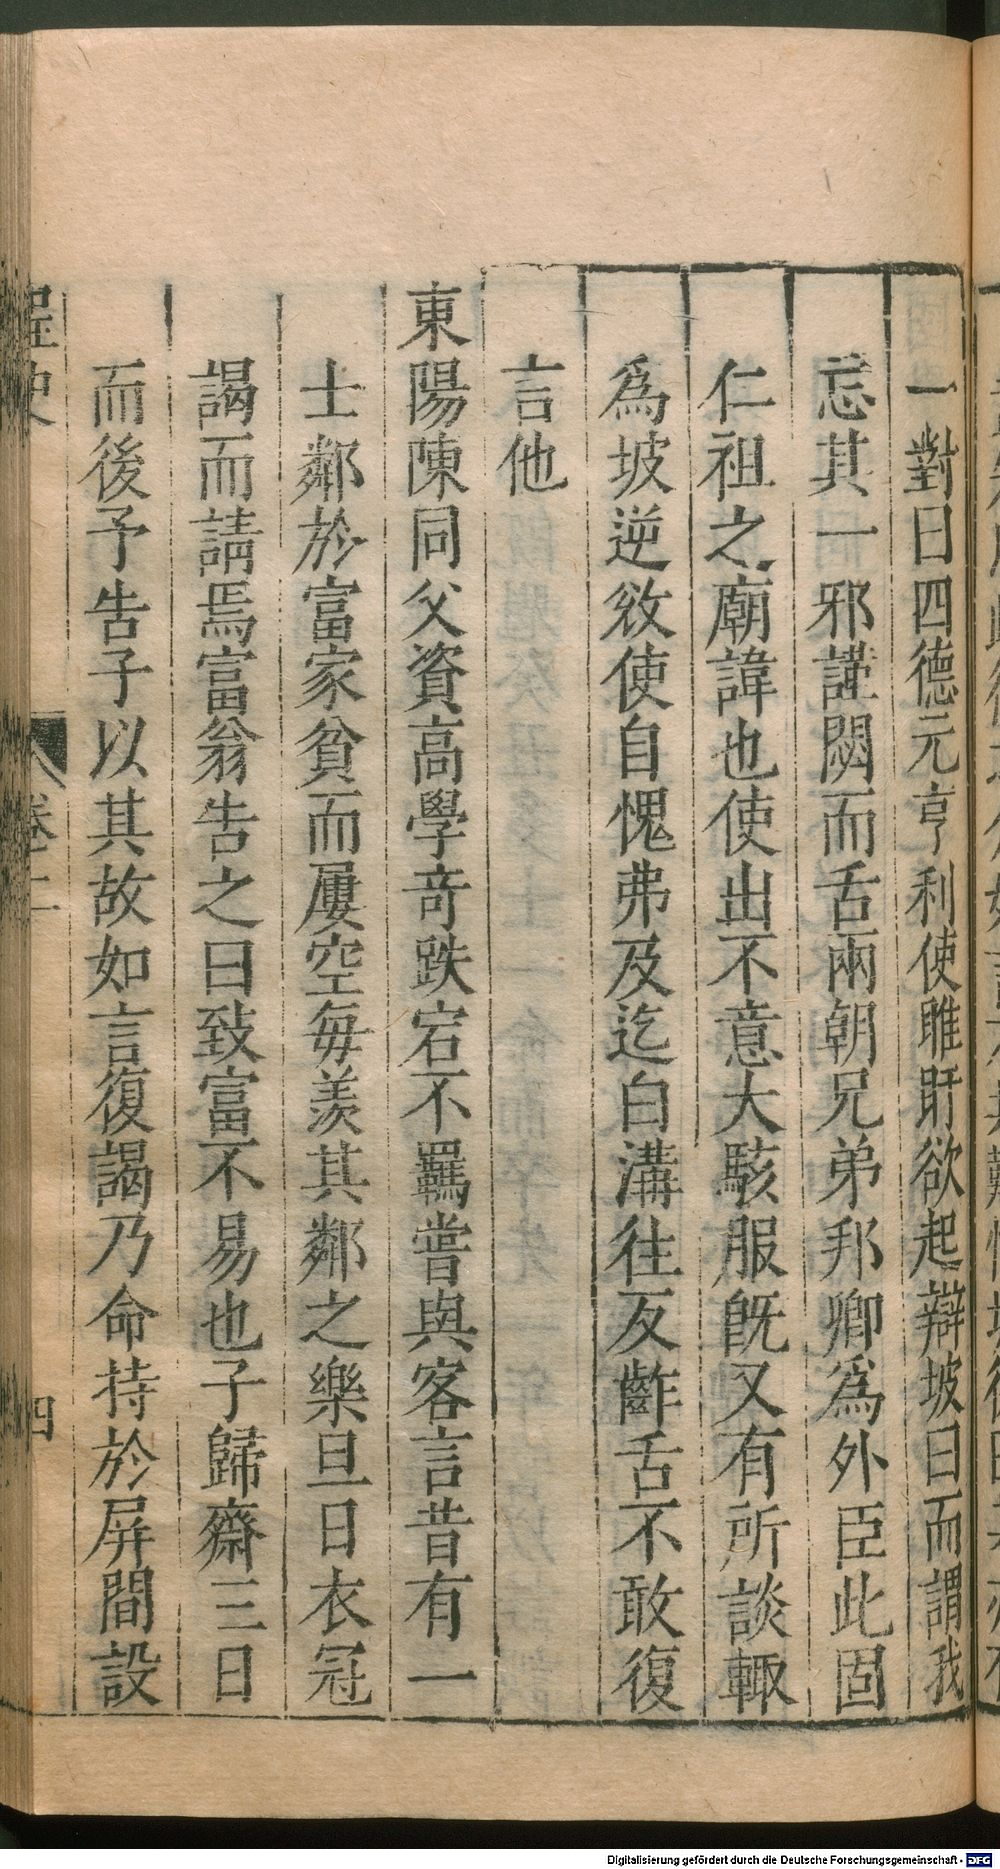 一對曰四德元亨利使睢盱欲起辯坡曰而謂我
忘其一邪謹閟而舌兩朝兄弟邦卿爲外臣此固
仁祖之廟諱也使出不意大駭服旣又有所談輙
爲坡逆敓使自愧弗及迄白溝往反齰舌不敢復
言他
東陽陳同父資高學竒跌宕不羈嘗與客言昔有一
士鄰於富家貧而屢空每羨其鄰之樂旦日衣冠
謁而請焉富翁告之曰致富不易也子歸齋三日
而後予告子以其故如言復謁乃命待於屏間設
桯史 卷二 四
Digitalisierung gefördert durch die Deutsche Forschungsgemeinschaft - DFG